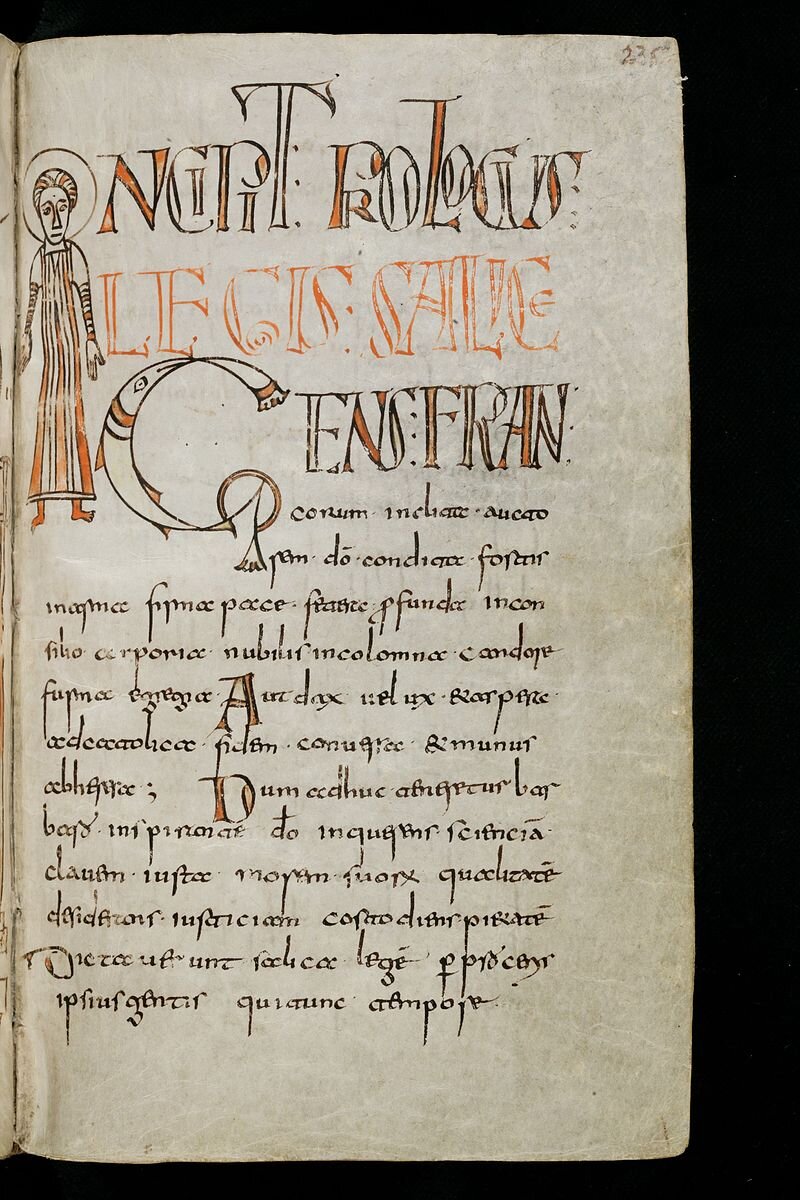 235
INCIPIT PROLOGUS:
LEGIS: SALICE
GENS: FRAN:
corum · inclita · aucto
rem · dō · condita · fortis
inarma firma pace · ꝓfunda incon
silio corporia · nubilis incolomna · candore
furma egregia · Audax uelux · & aspera ·
adcatolica · fidem · conuersa · & munus
abheresa ; Dum adhuc teneretur bar
inspirante dō inquerens sciencia ·
clauem · iusta morem suorꝝ qualitatē
desiderans · iusticiam costodiens pietatē
Dictauerunt salica legē ꝑ proceris
ipsius gentis qui tunc tempore ·